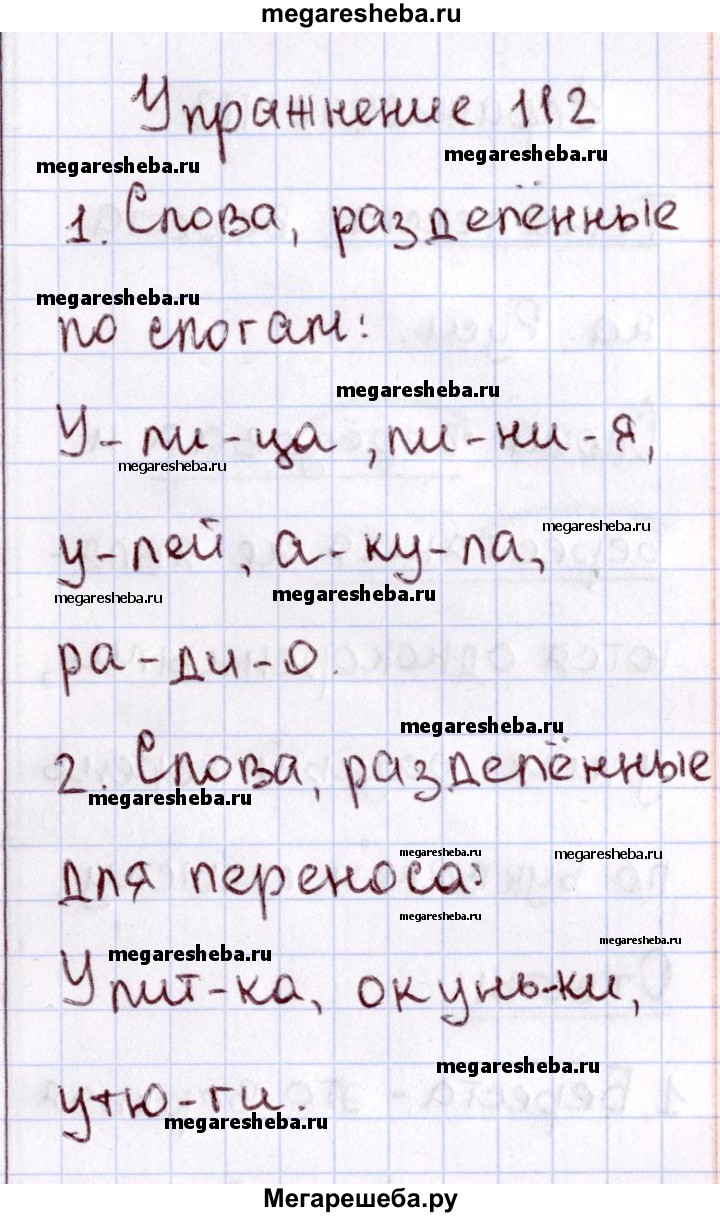 megaresheba.ru
Упражнение 112
megaresheba.ru
megaresheba.ru
1. Слова, разделённые
megaresheba.ru
по слогам:
megaresheba.ru
У-ли-ца, ли-ни-я,
megaresheba.ru
megaresheba.ru
у-лей, а-ку-ла,
megaresheba.ru
megaresheba.ru
ра-ди-о.
megaresheba.ru
2. Слова, разделённые
megaresheba.ru
megaresheba.ru
megaresheba.ru
для переноса:
megaresheba.ru
megaresheba.ru
megaresheba.ru
Улит-ка, окунь-ки,
megaresheba.ru
утю-ги.
megaresheba.ru
Мегарешеба.ру